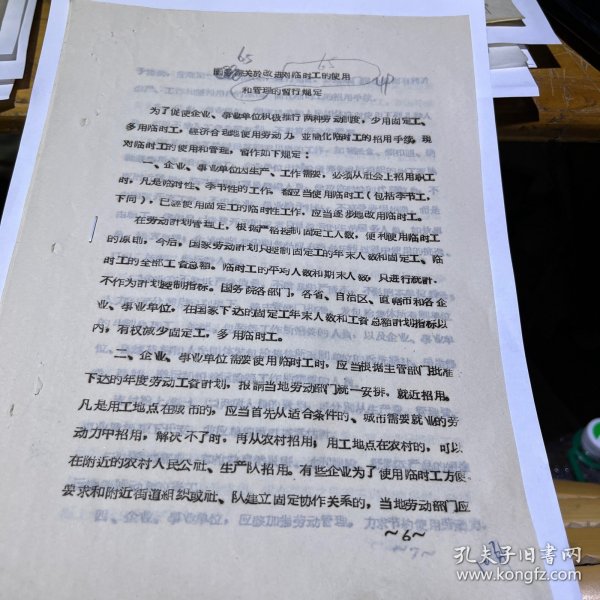 65
65
国务院关於改进对临时工的使用
和管理的暂行规定
为了促使企业、事业单位积极推行两种劳动制度，少用固定工、
多用临时工，经济合理地使用劳动力，並简化临时工的招用手续，现
对临时工的使用和管理，暂作如下规定：
一、企业、事业单位因生产、工作需要，必须从社会上招用职工
时，凡是临时性、季节性的工作，都应当使用临时工（包括季节工，
下同），已经使用固定工的临时性工作，应当逐步地改用临时工。
在劳动计划管理上，根据严格控制固定工人数，便利使用临时工
的原则，今后，国家劳动计划只控制固定工的年末人数和固定工、临
时工的全部工资总额。临时工的平均人数和期末人数，只进行统计，
不作为计划控制指标。国务院各部门，各省、自治区、直辖市和各企
业、事业单位，在国家下达的固定工年末人数和工资总额计划指标以
内，有权减少固定工，多用临时工。
二、企业、事业单位需要使用临时工时，应当根据主管部门批准
下达的年度劳动工资计划，报请当地劳动部门统一安排，就近招用。
凡是用工地点在城市的，应当首先从适合条件的、城市需要就业的劳
动力中招用，解决不了时，再从农村招用，用工地点在农村的，可以
在附近的农村人民公社、生产队招用。有些企业为了使用临时工方便
要求和附近街道组织或社、队建立固定协作关系的，当地劳动部门应
四、企业、事业单位，应该加强劳动管理，力求节约使用劳动力
～6～
～7～
孔夫子旧书网
www.kongfz.com